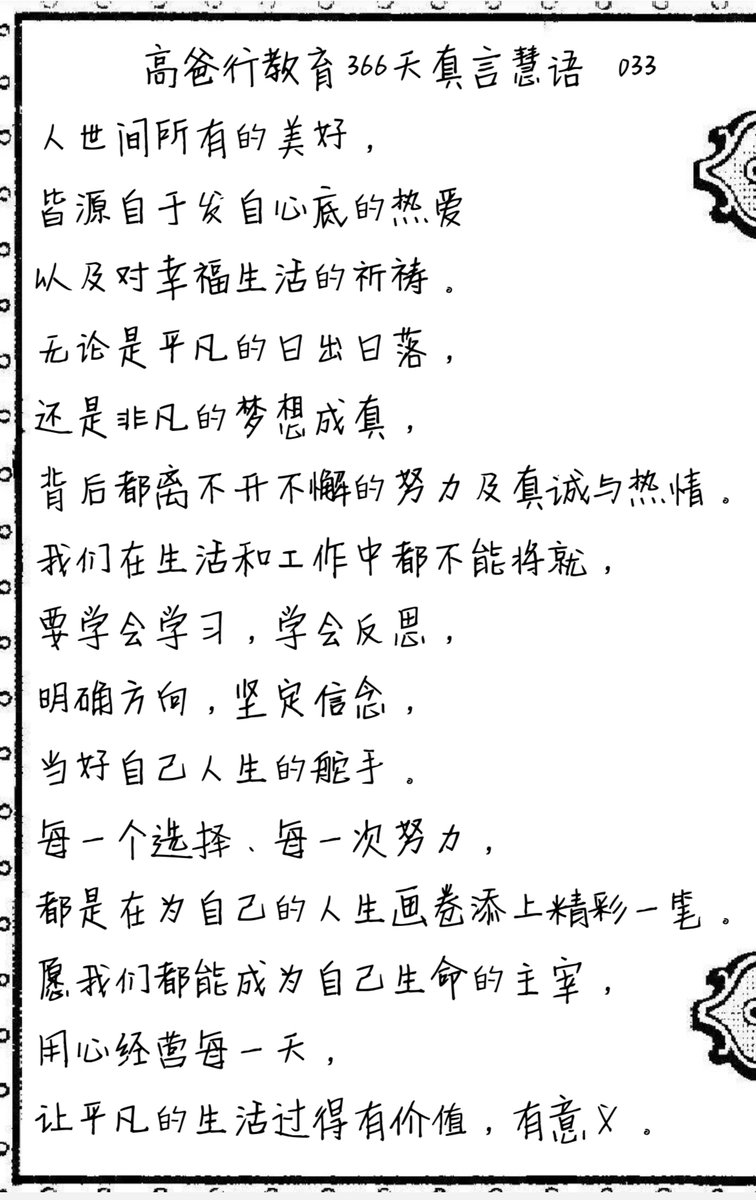 高爸行教育366天真言慧语 033
人世间所有的美好，
皆源自于发自心底的热爱
以及对幸福生活的祈祷。
无论是平凡的日出日落，
还是非凡的梦想成真，
背后都离不开不懈的努力及真诚与热情。
我们在生活和工作中都不能将就，
要学会学习，学会反思，
明确方向，坚定信念，
当好自己人生的舵手。
每一个选择、每一次努力，
都是在为自己的人生画卷添上精彩一笔。
愿我们都能成为自己生命的主宰，
用心经营每一天，
让平凡的生活过得有价值，有意义。